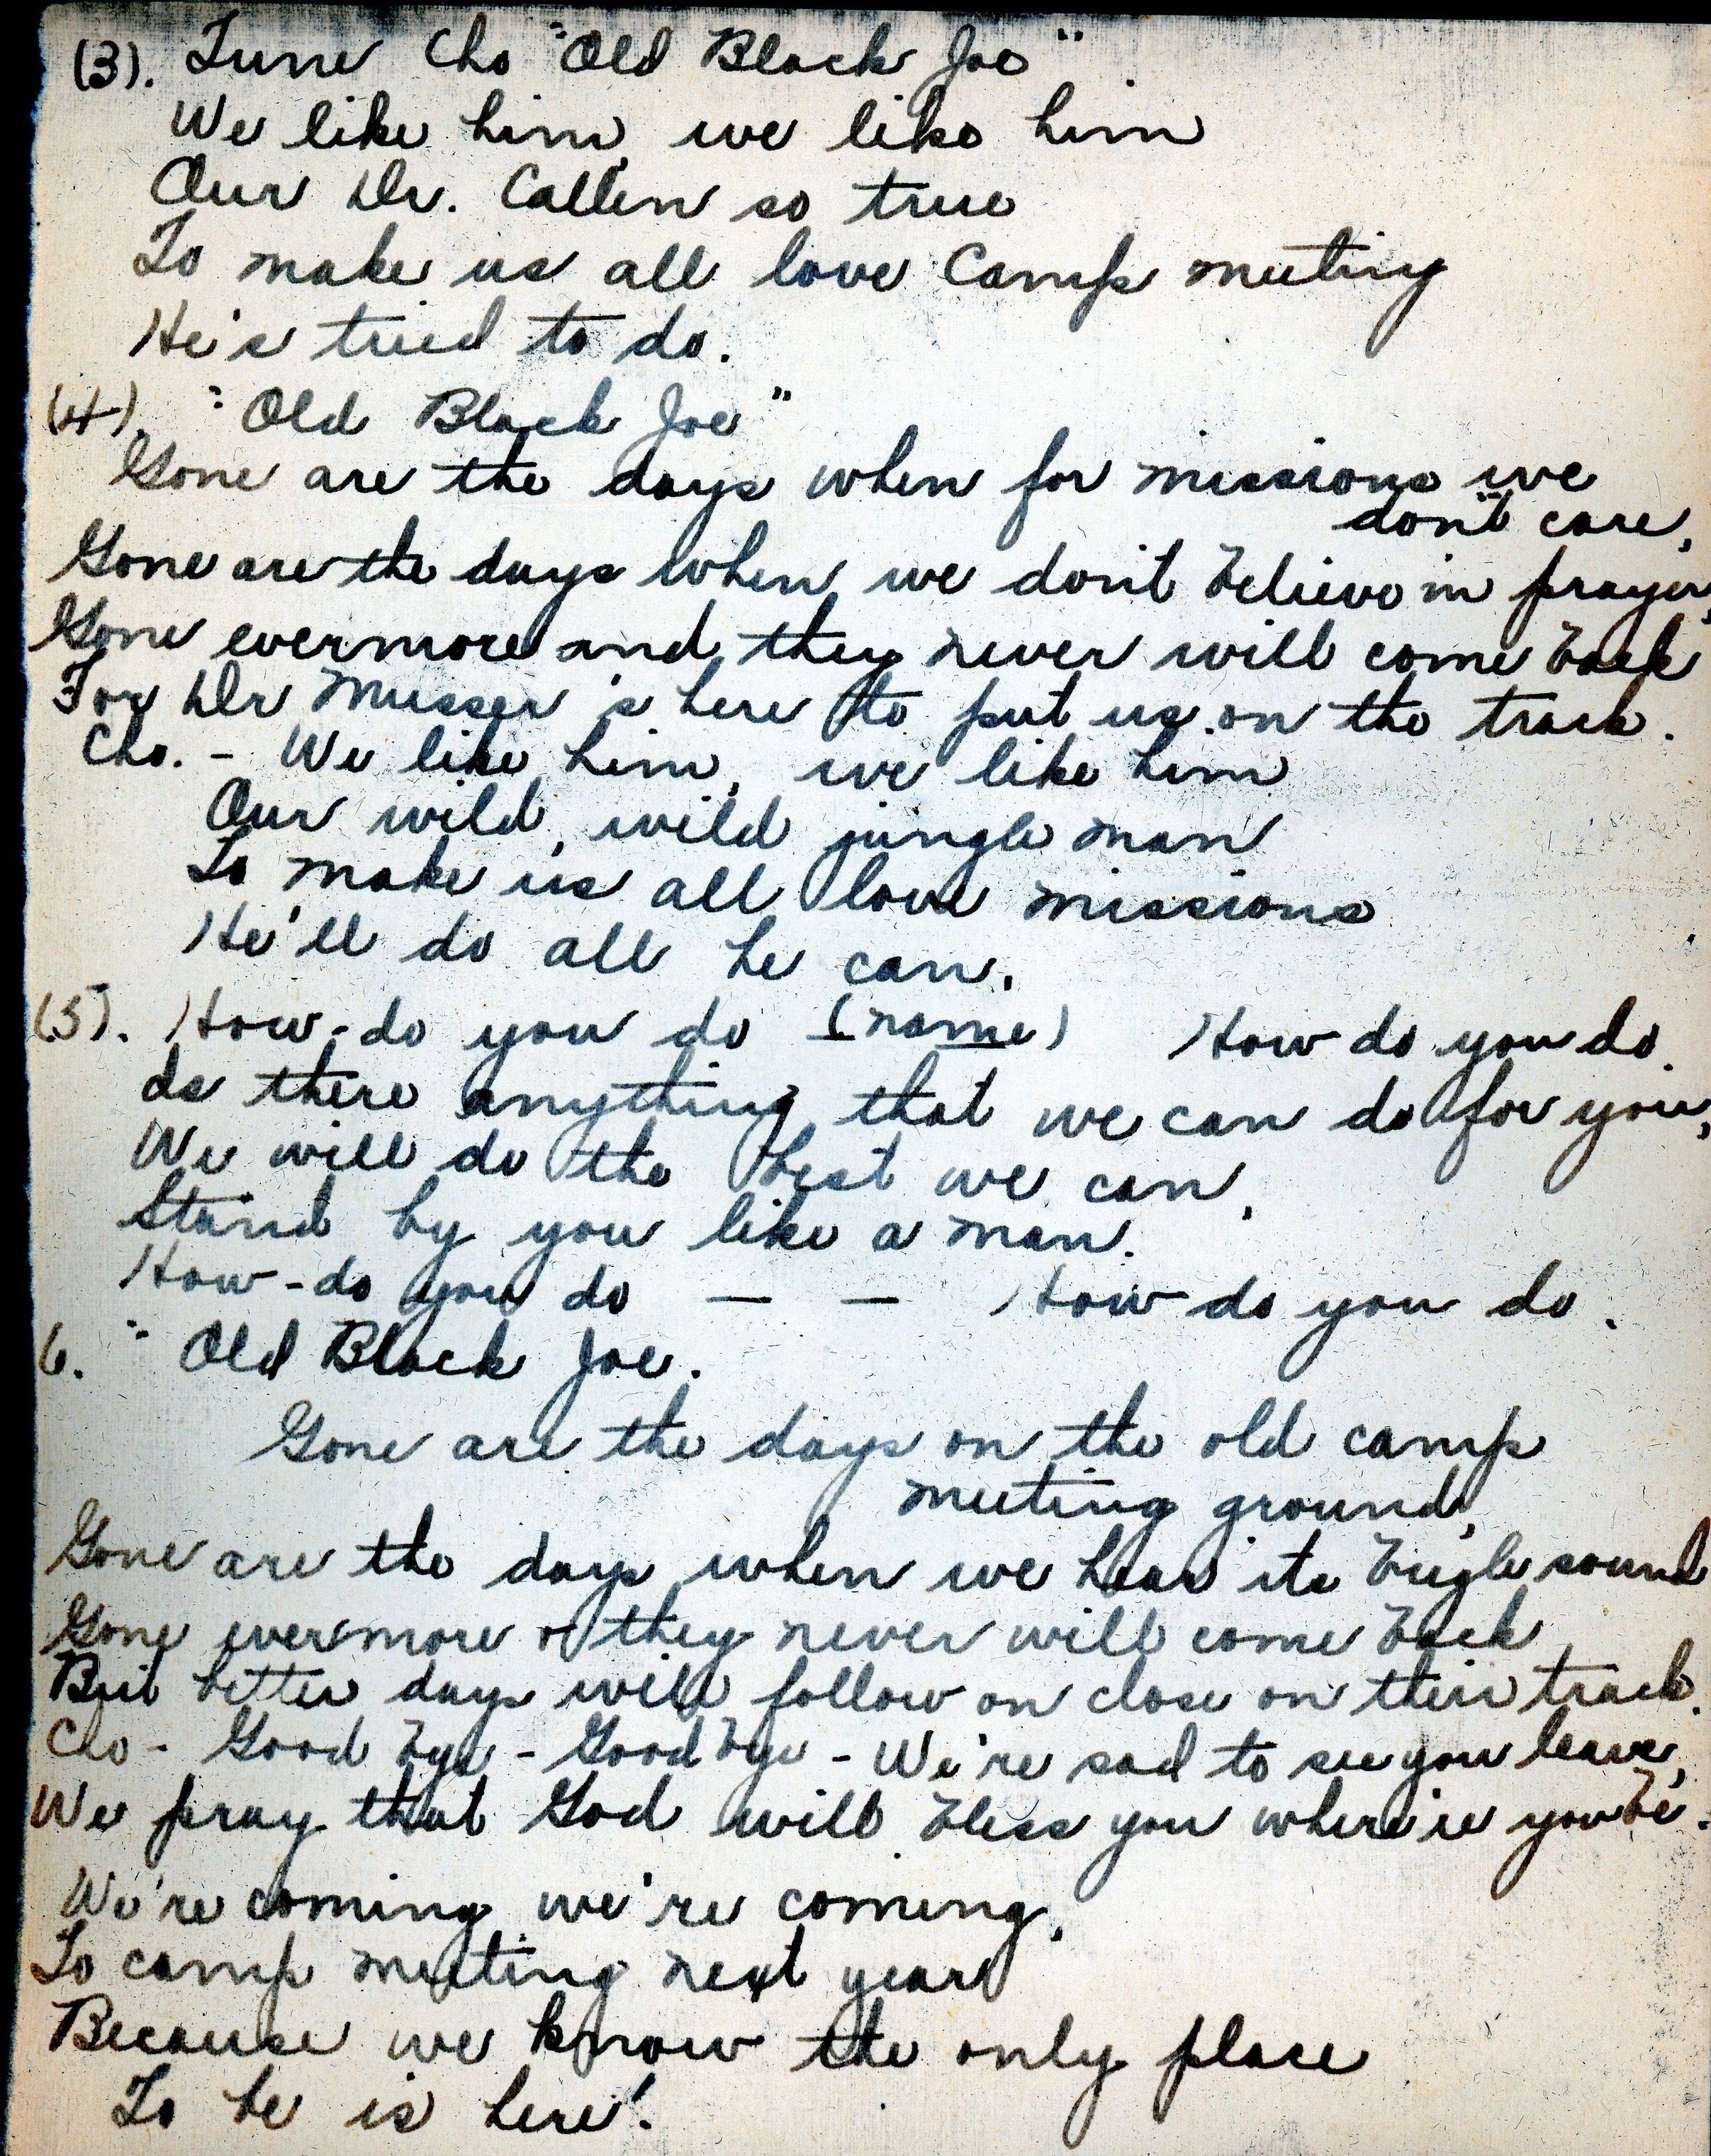 (3). Tune Cho "Old Black Joe"
We like him, we like him
Our Dr. Callen so true
To make us all love Camp meeting
He's tried to do.
(4). "Old Black Joe"
Gone are the days when for missions we
don't care,
Gone are the days when we don't believe in prayer,
Gone evermore and they never will come back
For Dr Musser's here to put us on the track.
Cho. - We like him, we like him
Our wild, wild jungle man
To make us all love missions
He'll do all he can.
(5). How-do you do (name) How do you do.
Is there anything that we can do for you,
We will do the best we can,
Stand by you like a man.
How-do you do — — How do you do.
6. " Old Black Joe.
Gone are the days on the old camp
meeting ground,
Gone are the days when we hear its bugle sound
Gone evermore & they never will come back
But better days will follow on close on their track.
Cho - Good bye - Good bye - We're sad to see you leave,
We pray that God will bless you where'ie you be.
We're coming we're coming,
To camp meeting next year
Because we know the only place
To be is here!